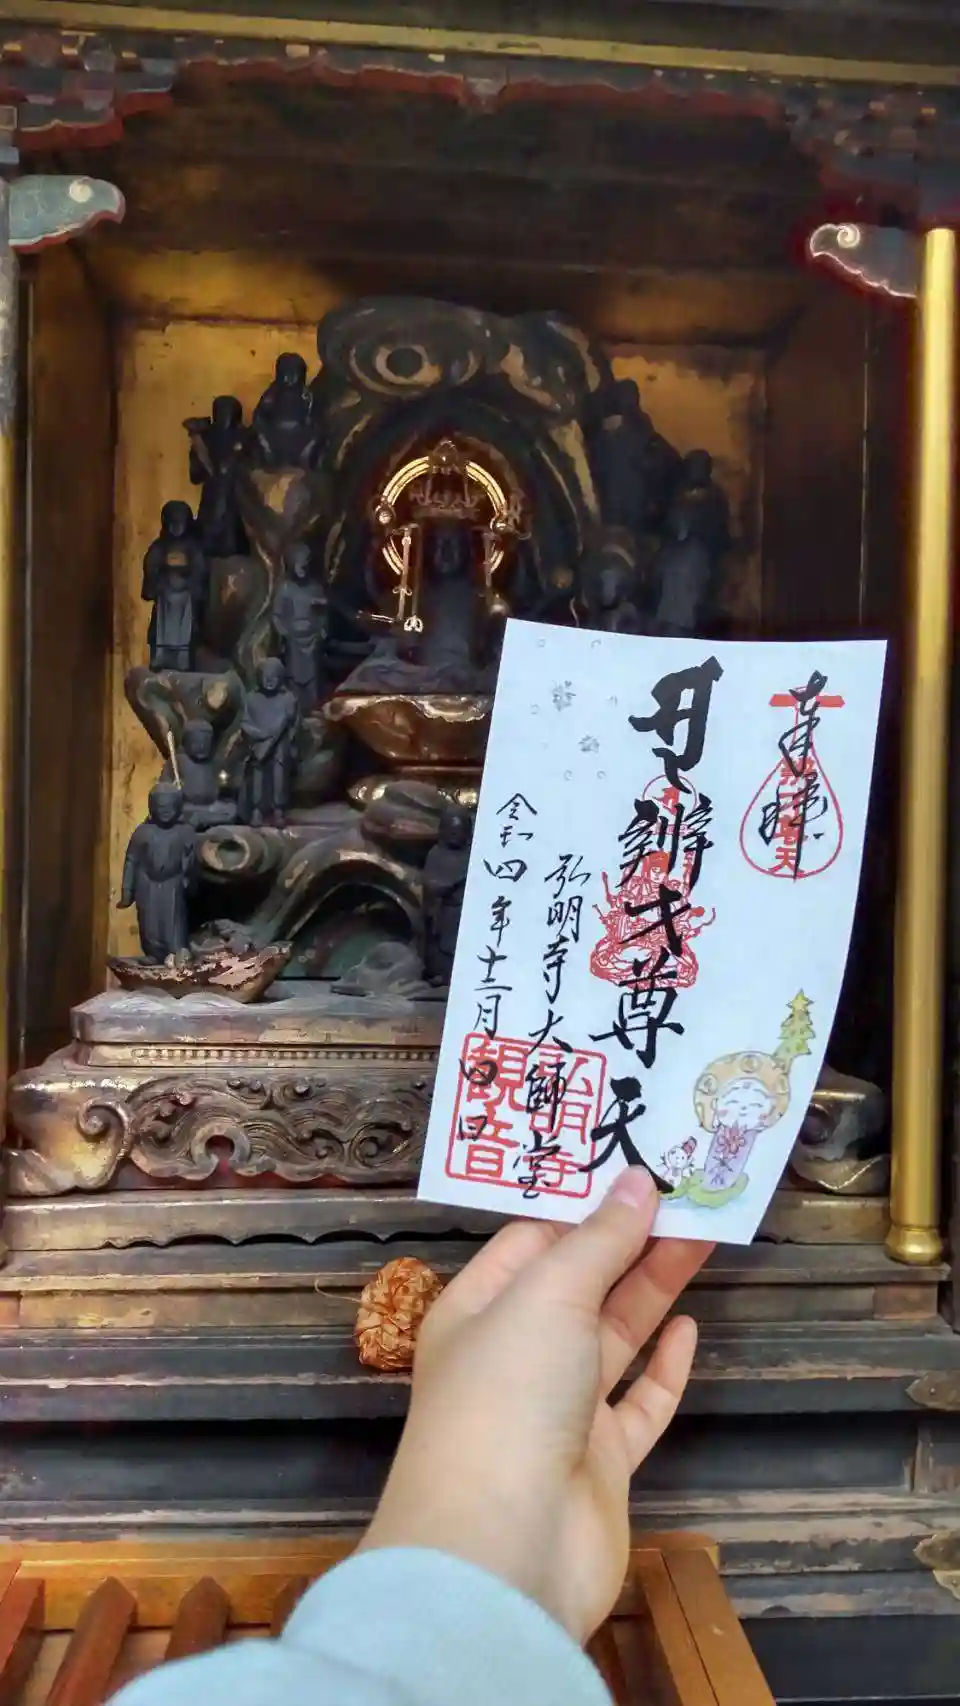 奉拝
辨才尊天
弘明寺大師堂
令和四年十二月四日
弘明寺
観音